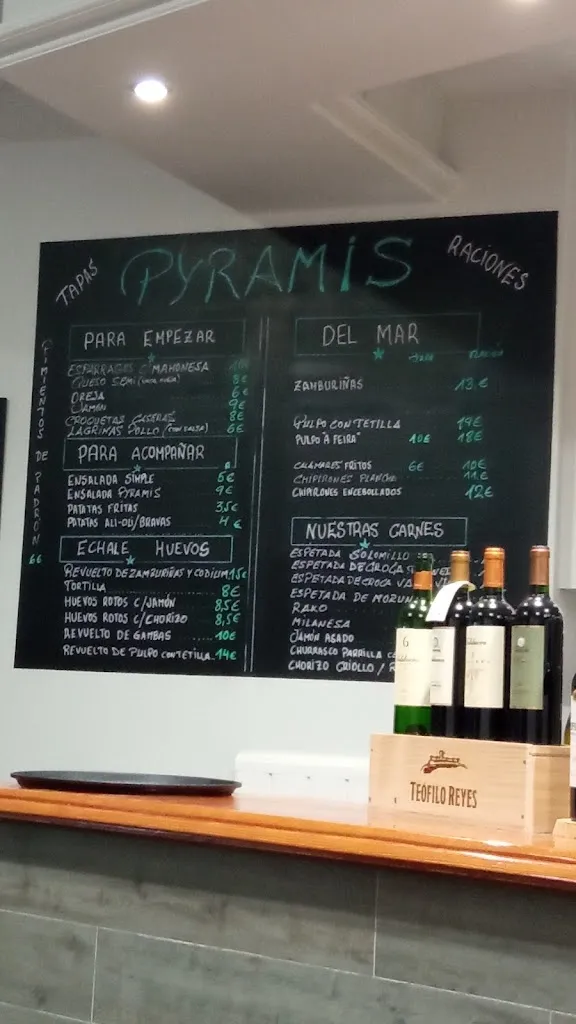 TAPAS
PYRAMIS
RACIONES
PIMIENTOS DE PADRÓN
6€
PARA EMPEZAR
ESPÁRRAGOS C/MAHONESA 10€
QUESO SEMI 8€
OREJA 6€
JAMÓN 9€
CROQUETAS CASERAS 8€
LAGRIMAS POLLO (CON SALSA) 6€
PARA ACOMPAÑAR
ENSALADA SIMPLE 5€
ENSALADA PYRAMIS 9€
PATATAS FRITAS 3,5€
PATATAS ALI-OLI/BRAVAS 4€
ECHALE HUEVOS
REVUELTO DE ZAMBURIÑAS Y CODIUM 15€
TORTILLA 8€
HUEVOS ROTOS C/JAMÓN 8,5€
HUEVOS ROTOS C/CHORIZO 8,5€
REVUELTO DE GAMBAS 10€
REVUELTO DE PULPO CON TETILLA 14€
DEL MAR
ZAMBURIÑAS 13€
PULPO CON TETILLA 19€
PULPO Á FEIRA 10€ 18€
CALAMARES FRITOS 6€ 10€
CHIPIRONES PLANCHA 11€
CHIPIRONES ENCEBOLLADOS 12€
NUESTRAS CARNES
ESPETADA SOLOMILLO
ESPETADA DE CROCA
ESPETADA DE CROCA
ESPETADA DE
RAXO
MILANESA
JAMÓN ASADO
CHURRASCO PARRILLA
CHORIZO CRIOLLO /
6
TEÓFILO REYES